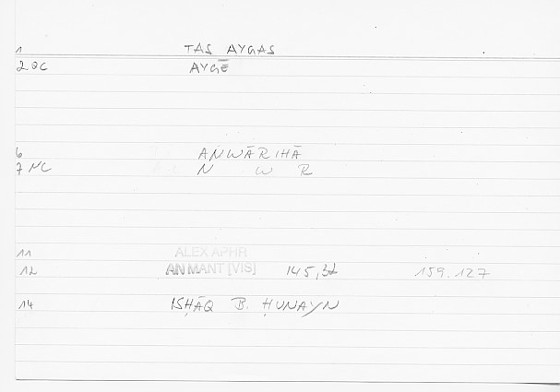 1 TAS AYGAS
2 OC AYGĒ
6 ANWĀRIHĀ
7 NC N W R
11 ALEX APHR
12 AN MANT [VIS] 145, 159.127
14 ISḤĀQ B. ḤUNAYN